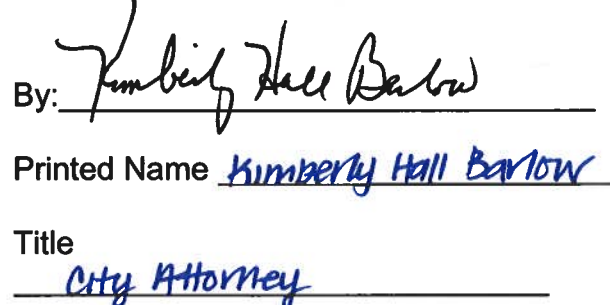 By: Kimberly Hall Barlow
Printed Name Kimberly Hall Barlow
Title
City Attorney